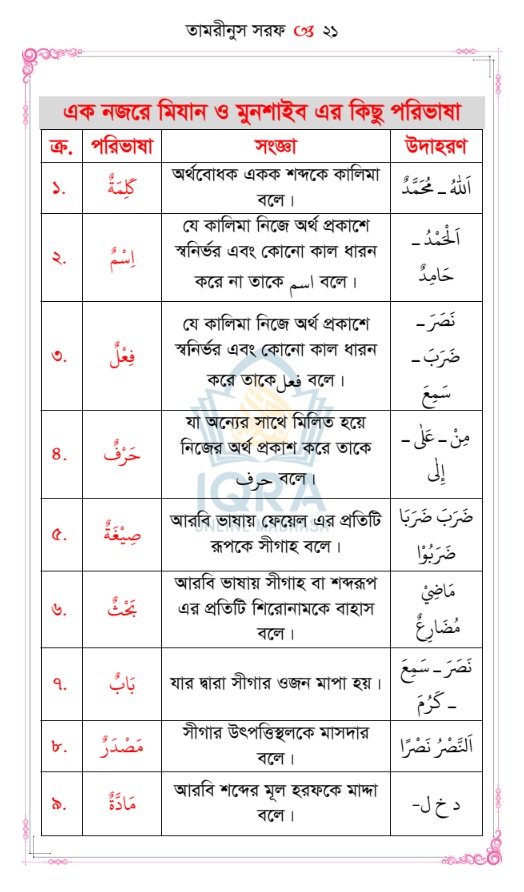 তামরীনুস সরফ ২১
এক নজরে মিযান ও মুনশাইব এর কিছু পরিভাষা
ক্র. পরিভাষা সংজ্ঞা উদাহরণ
১. كَلِمَةٌ অর্থবোধক একক শব্দকে কালিমা বলে। اَللهُ ـ مُحَمَّدٌ
২. اِسْمٌ যে কালিমা নিজে অর্থ প্রকাশে স্বনির্ভর এবং কোনো কাল ধারন করে না তাকে اسم বলে। اَلْحَمْدُ ـ حَامِدٌ
৩. فِعْلٌ যে কালিমা নিজে অর্থ প্রকাশে স্বনির্ভর এবং কোনো কাল ধারন করে তাকে فعل বলে। نَصَرَ ـ ضَرَبَ ـ سَمِعَ
৪. حَرْفٌ যা অন্যের সাথে মিলিত হয়ে নিজের অর্থ প্রকাশ করে তাকে حرف বলে। مِنْ ـ عَلٰى ـ إِلٰى
৫. صِيْغَةٌ আরবি ভাষায় ফেয়েল এর প্রতিটি রূপকে সীগাহ বলে। ضَرَبَ ضَرَبَا ضَرَبُوْا
৬. بَحْثٌ আরবি ভাষায় সীগাহ বা শব্দরূপ এর প্রতিটি শিরোনামকে বাহাস বলে। مَاضِيْ مُضَارِعٌ
৭. بَابٌ যার দ্বারা সীগার ওজন মাপা হয়। نَصَرَ ـ سَمِعَ ـ كَرُمَ
৮. مَصْدَرٌ সীগার উৎপত্তিস্থলকে মাসদার বলে। اَلنَّصْرُ نَصْرًا
৯. مَادَّةٌ আরবি শব্দের মূল হরফকে মাদ্দা বলে। د خ ل-
IQRA
ONLINE MADRASA